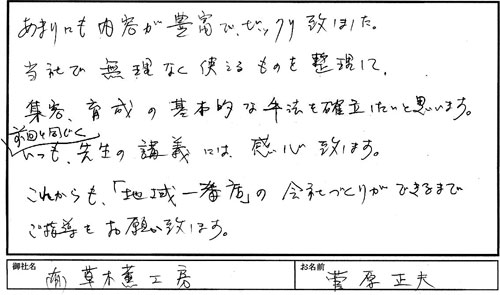 あまりにも内容が豊富で、ビックリ致しました。
当社で無理なく使えるものを整理して、
集客、育成の基本的な手法を確立したいと思います。
前回と同じく
いつも、先生の講義には、感心致します。
これからも、「地域一番店」の会社づくりができるまで
ご指導をお願い致します。
御社名 (有)草木薫工房 お名前 菅原正夫